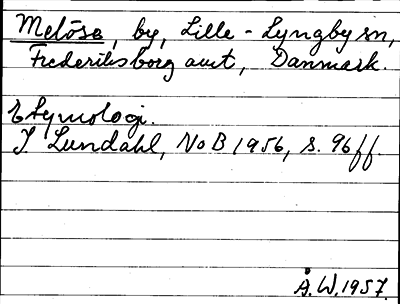 Meløse, by, Lille-Lyngby sn,
Frederiksborg amt, Danmark.
Etymologi.
I Lundahl, NoB 1956, s. 96ff.
Å.W. 1957.